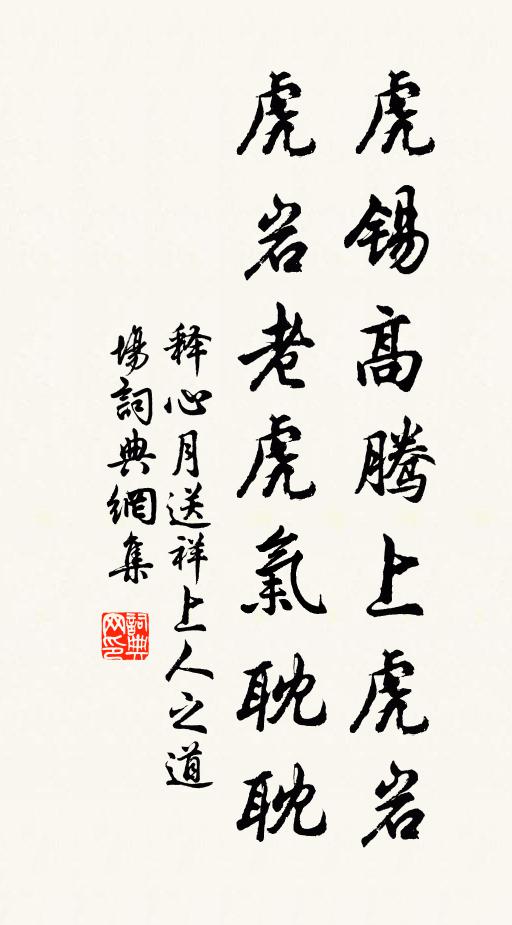 虎锡高腾上虎岩
虎岩老虎氣耽耽
释心月送祥上人之道
場詞典網集
詞典网印